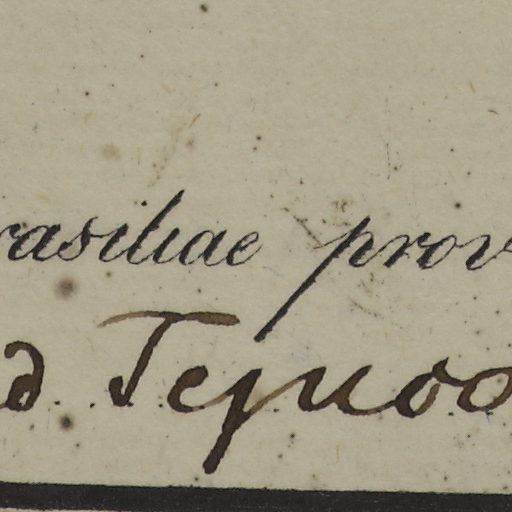 rasiliae prov
d Tejuco